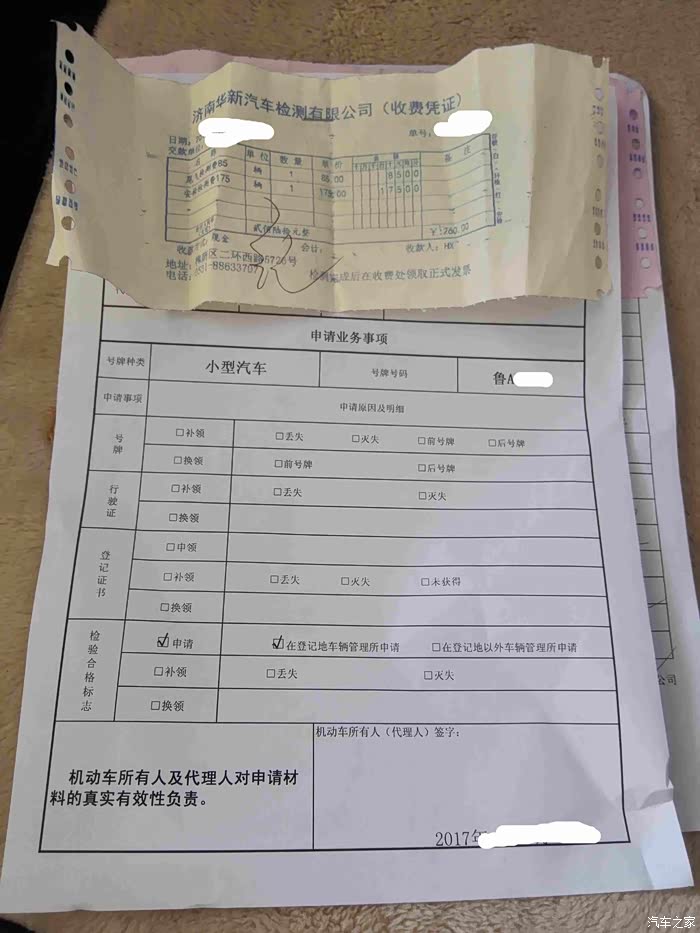 济南华新汽车检测有限公司（收费凭证）
日期：
单号：
交款单位：
单位 数量 单价 金额 备注
尾气检测费85 辆 1 85.00 8500
安检检测费175 辆 1 175.00 17500
贰佰陆拾元整 ￥:260.00
收款方式：现金 会计： 收款人：HX
地址：槐荫区二环西路5726号
电话：0531-88633707 检测完成后在收费处领取正式发票
申请业务事项
号牌种类 小型汽车 号牌号码 鲁A
申请事项 申请原因及明细
号牌 □补领 □丢失 □灭失 □前号牌 □后号牌
□换领 □前号牌 □后号牌
行驶证 □补领 □丢失 □灭失
□换领
登记证书 □申领
□补领 □丢失 □灭失 □未获得
□换领
检验合格标志 ☑申请 ☑在登记地车辆管理所申请 □在登记地以外车辆管理所申请
□补领 □丢失 □灭失
□换领
机动车所有人（代理人）签字：
机动车所有人及代理人对申请材
料的真实有效性负责。
2017年
公司
汽车之家